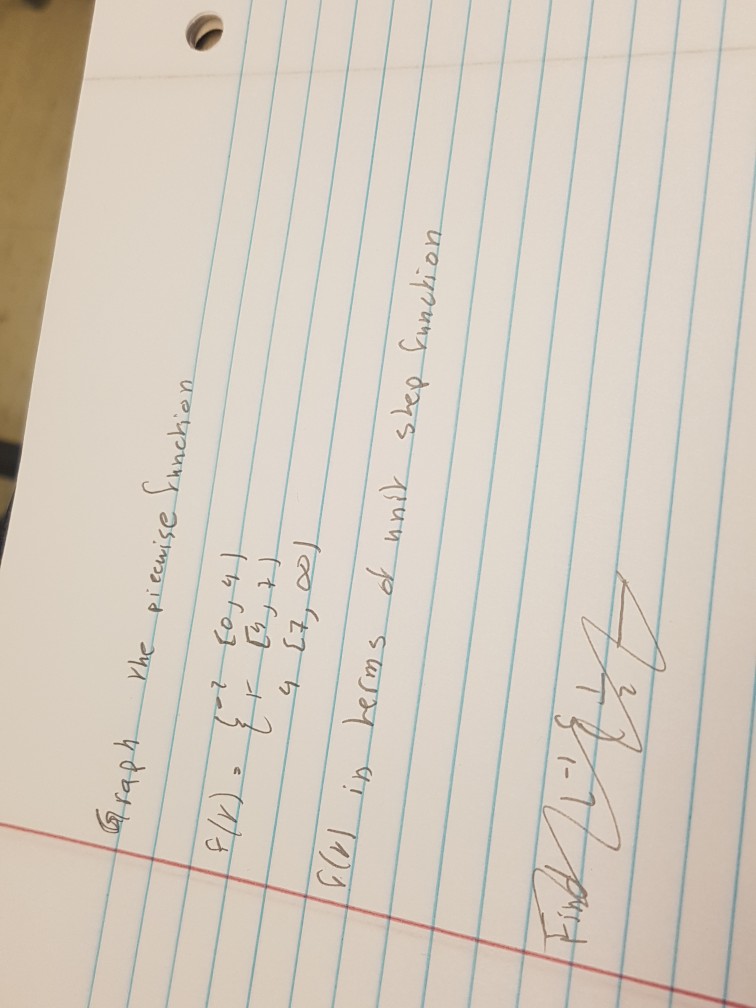 Graph the piecewise function
f(t) = { -2 [0, 4)
[4, 7)
4 [7, ∞)
f(t) in terms of unit step function
Find